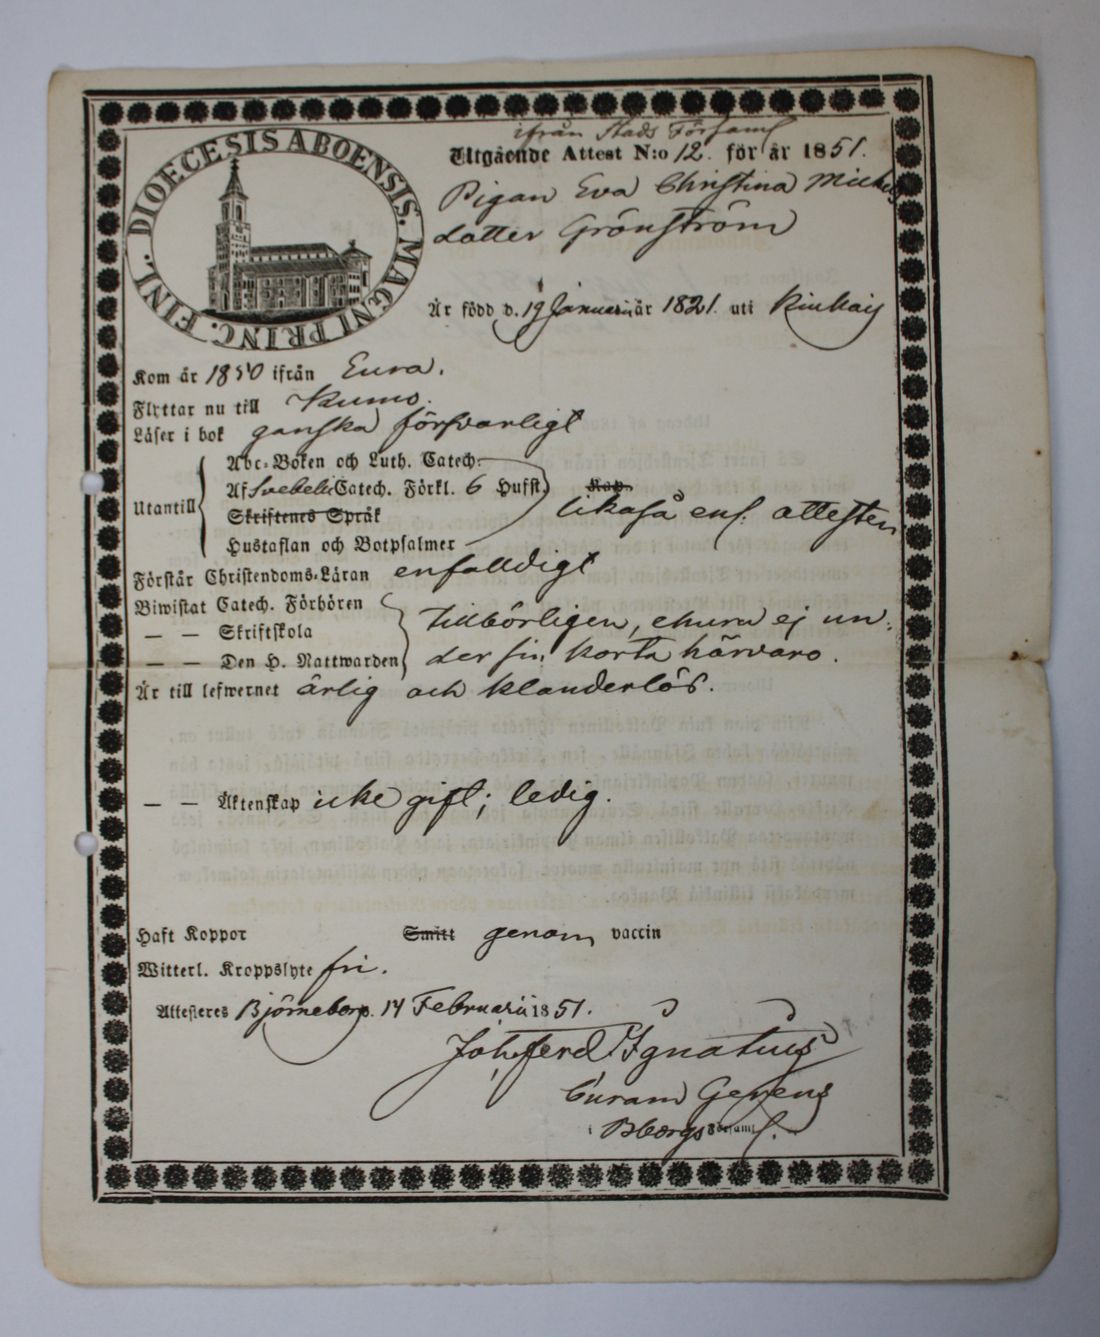 DIOECESIS ABOENSIS. MAGNI PRINC. FINL.
ifrån Stads Församl
Utgående Attest N:o 12. för år 1851.
Pigan Eva Christina Mickels
dotter Grönström
Är född d. 19 Januarii år 1821. uti Kiukais
Kom år 1850 ifrån Eura.
Flyttar nu till Kumo.
Läser i bok ganska försvarligt
Utantill
Abc-Boken och Luth. Catech.
Af Svebelii Catech. Förkl. 6 Hufst. Kap.
Skriftenes Språk likaså enl. attesten
Hustaflan och Botpsalmer
Förstår Christendoms-Läran enfalldigt
Biwistat Catech. Förhören
— — Skriftskola tillbörligen, ehuru ej un-
— — Den H. Nattwarden der sin korta härvaro.
Är till lefwernet ärlig och klanderlös.
— — Äktenskap icke gift; ledig.
Haft Koppor Smitt genom vaccin
Witterl. Kroppslyte fri.
Attesteres Björneborg d. 14 Februarii 1851.
Joh. Ferd. Ignatius
Curam Gerens
i Bborgs Församl.